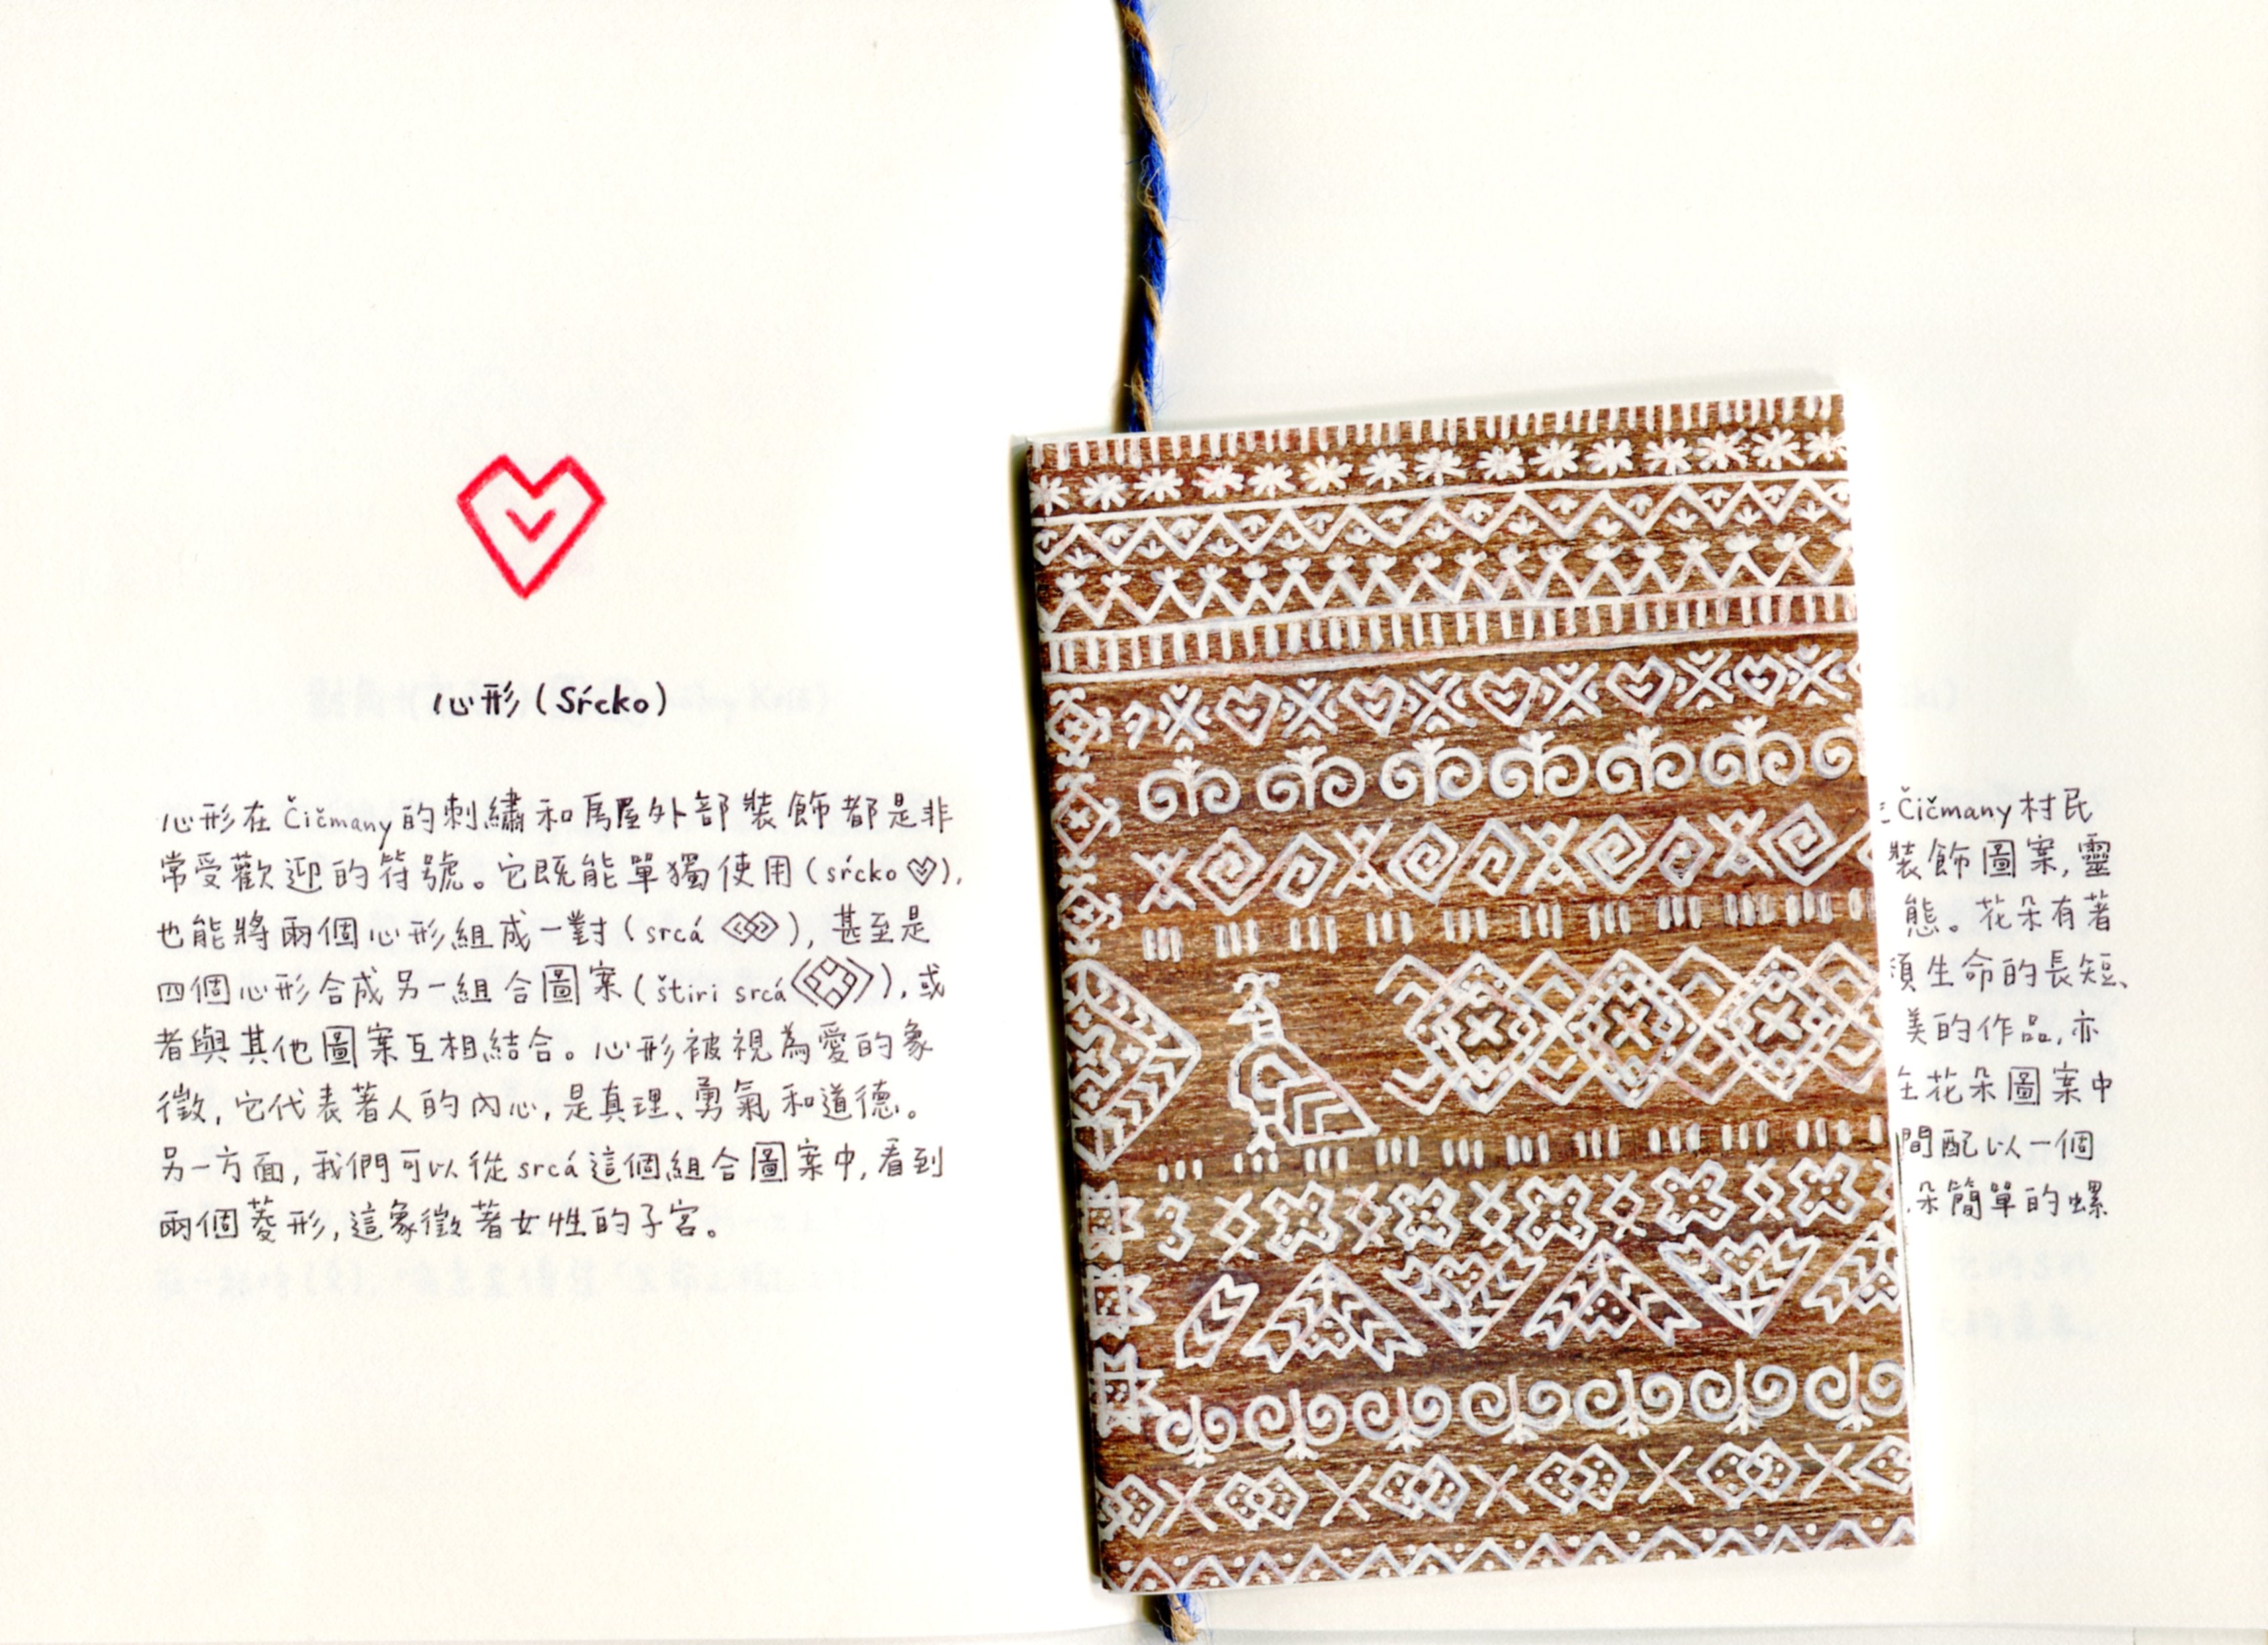 心形 (Sŕcko)
心形在Čičmany的刺繡和房屋外部裝飾都是非
常受歡迎的符號。它既能單獨使用(sŕcko),
也能將兩個心形組成一對(srcá), 甚至是
四個心形合成另一組合圖案(štiri srcá), 或
者與其他圖案互相結合。心形被視為愛的象
徵, 它代表著人的內心, 是真理、勇氣和道德。
另一方面, 我們可以從srcá這個組合圖案中, 看到
兩個菱形, 這象徵著女性的子宮。
Čičmany村民
裝飾圖案, 靈
態。花朵有著
須生命的長短、
美的作品, 亦
在花朵圖案中
間配以一個
朵簡單的螺